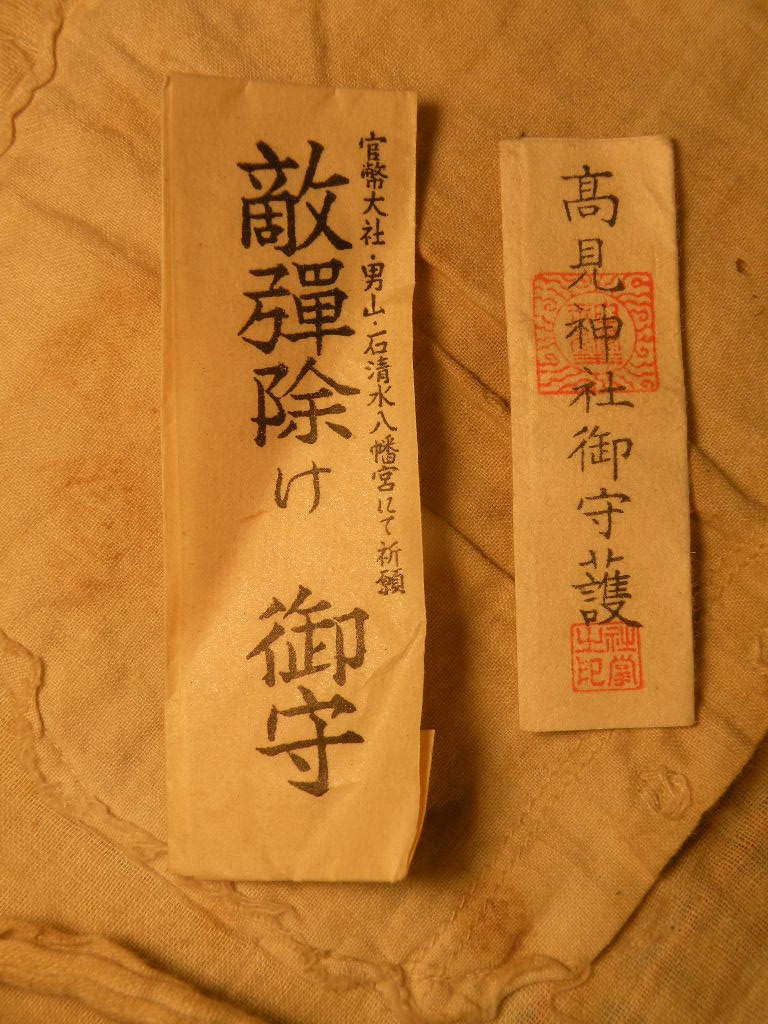 官幣大社・男山・石清水八幡宮にて祈願
敵彈除け 御守
髙見神社御守護
社掌之印